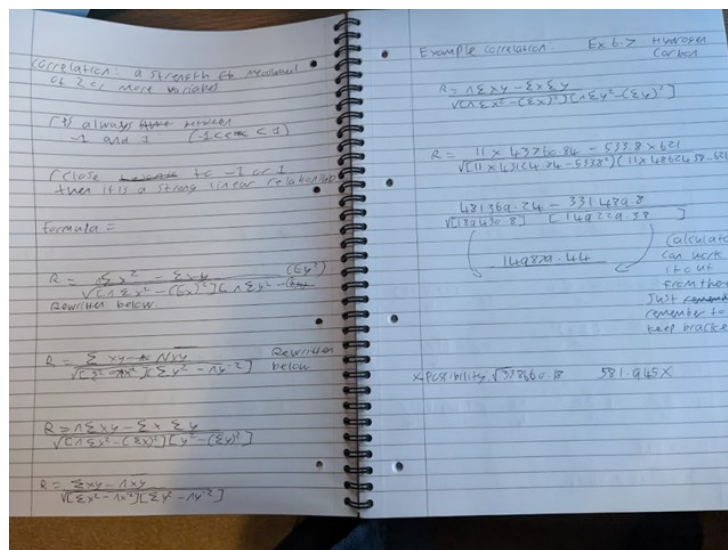 Correlation: a strength
of 2 or more variables
r is always between
-1 and 1 (-1 < < 1)
r close to -1 or 1
then it is a strong linear relationship
formula =
R = Σx² - Σxy (Σy²)
√[nΣx² - (Σx)²][nΣy² -
Rewritten below
R = Σxy - nxy Rewritten
√[Σ² - nx²][Σy² - ny²] below
R = nΣxy - Σx Σy
√[nΣx² - (Σx)²][y² - (Σy)²]
R = Σxy - nxy
√[Σx² - nx²][Σy² - ny²]
Example correlation: Ex 6.7 Hydrogen
Carbon
R = nΣxy - ΣxΣy
√[nΣx² - (Σx)²][nΣy² - (Σy)²]
R = 11 × 43760.84 - 533.8 × 621
√[11 × 43124.84 - 533.8²](11 × 48624.58 - 621
481369.24 - 331489.8
√[189430.8] [149229.38]
149879.44
Calculator
can work
it out
from there
Just
remember to
keep brackets
x Possibility √ 581.945x